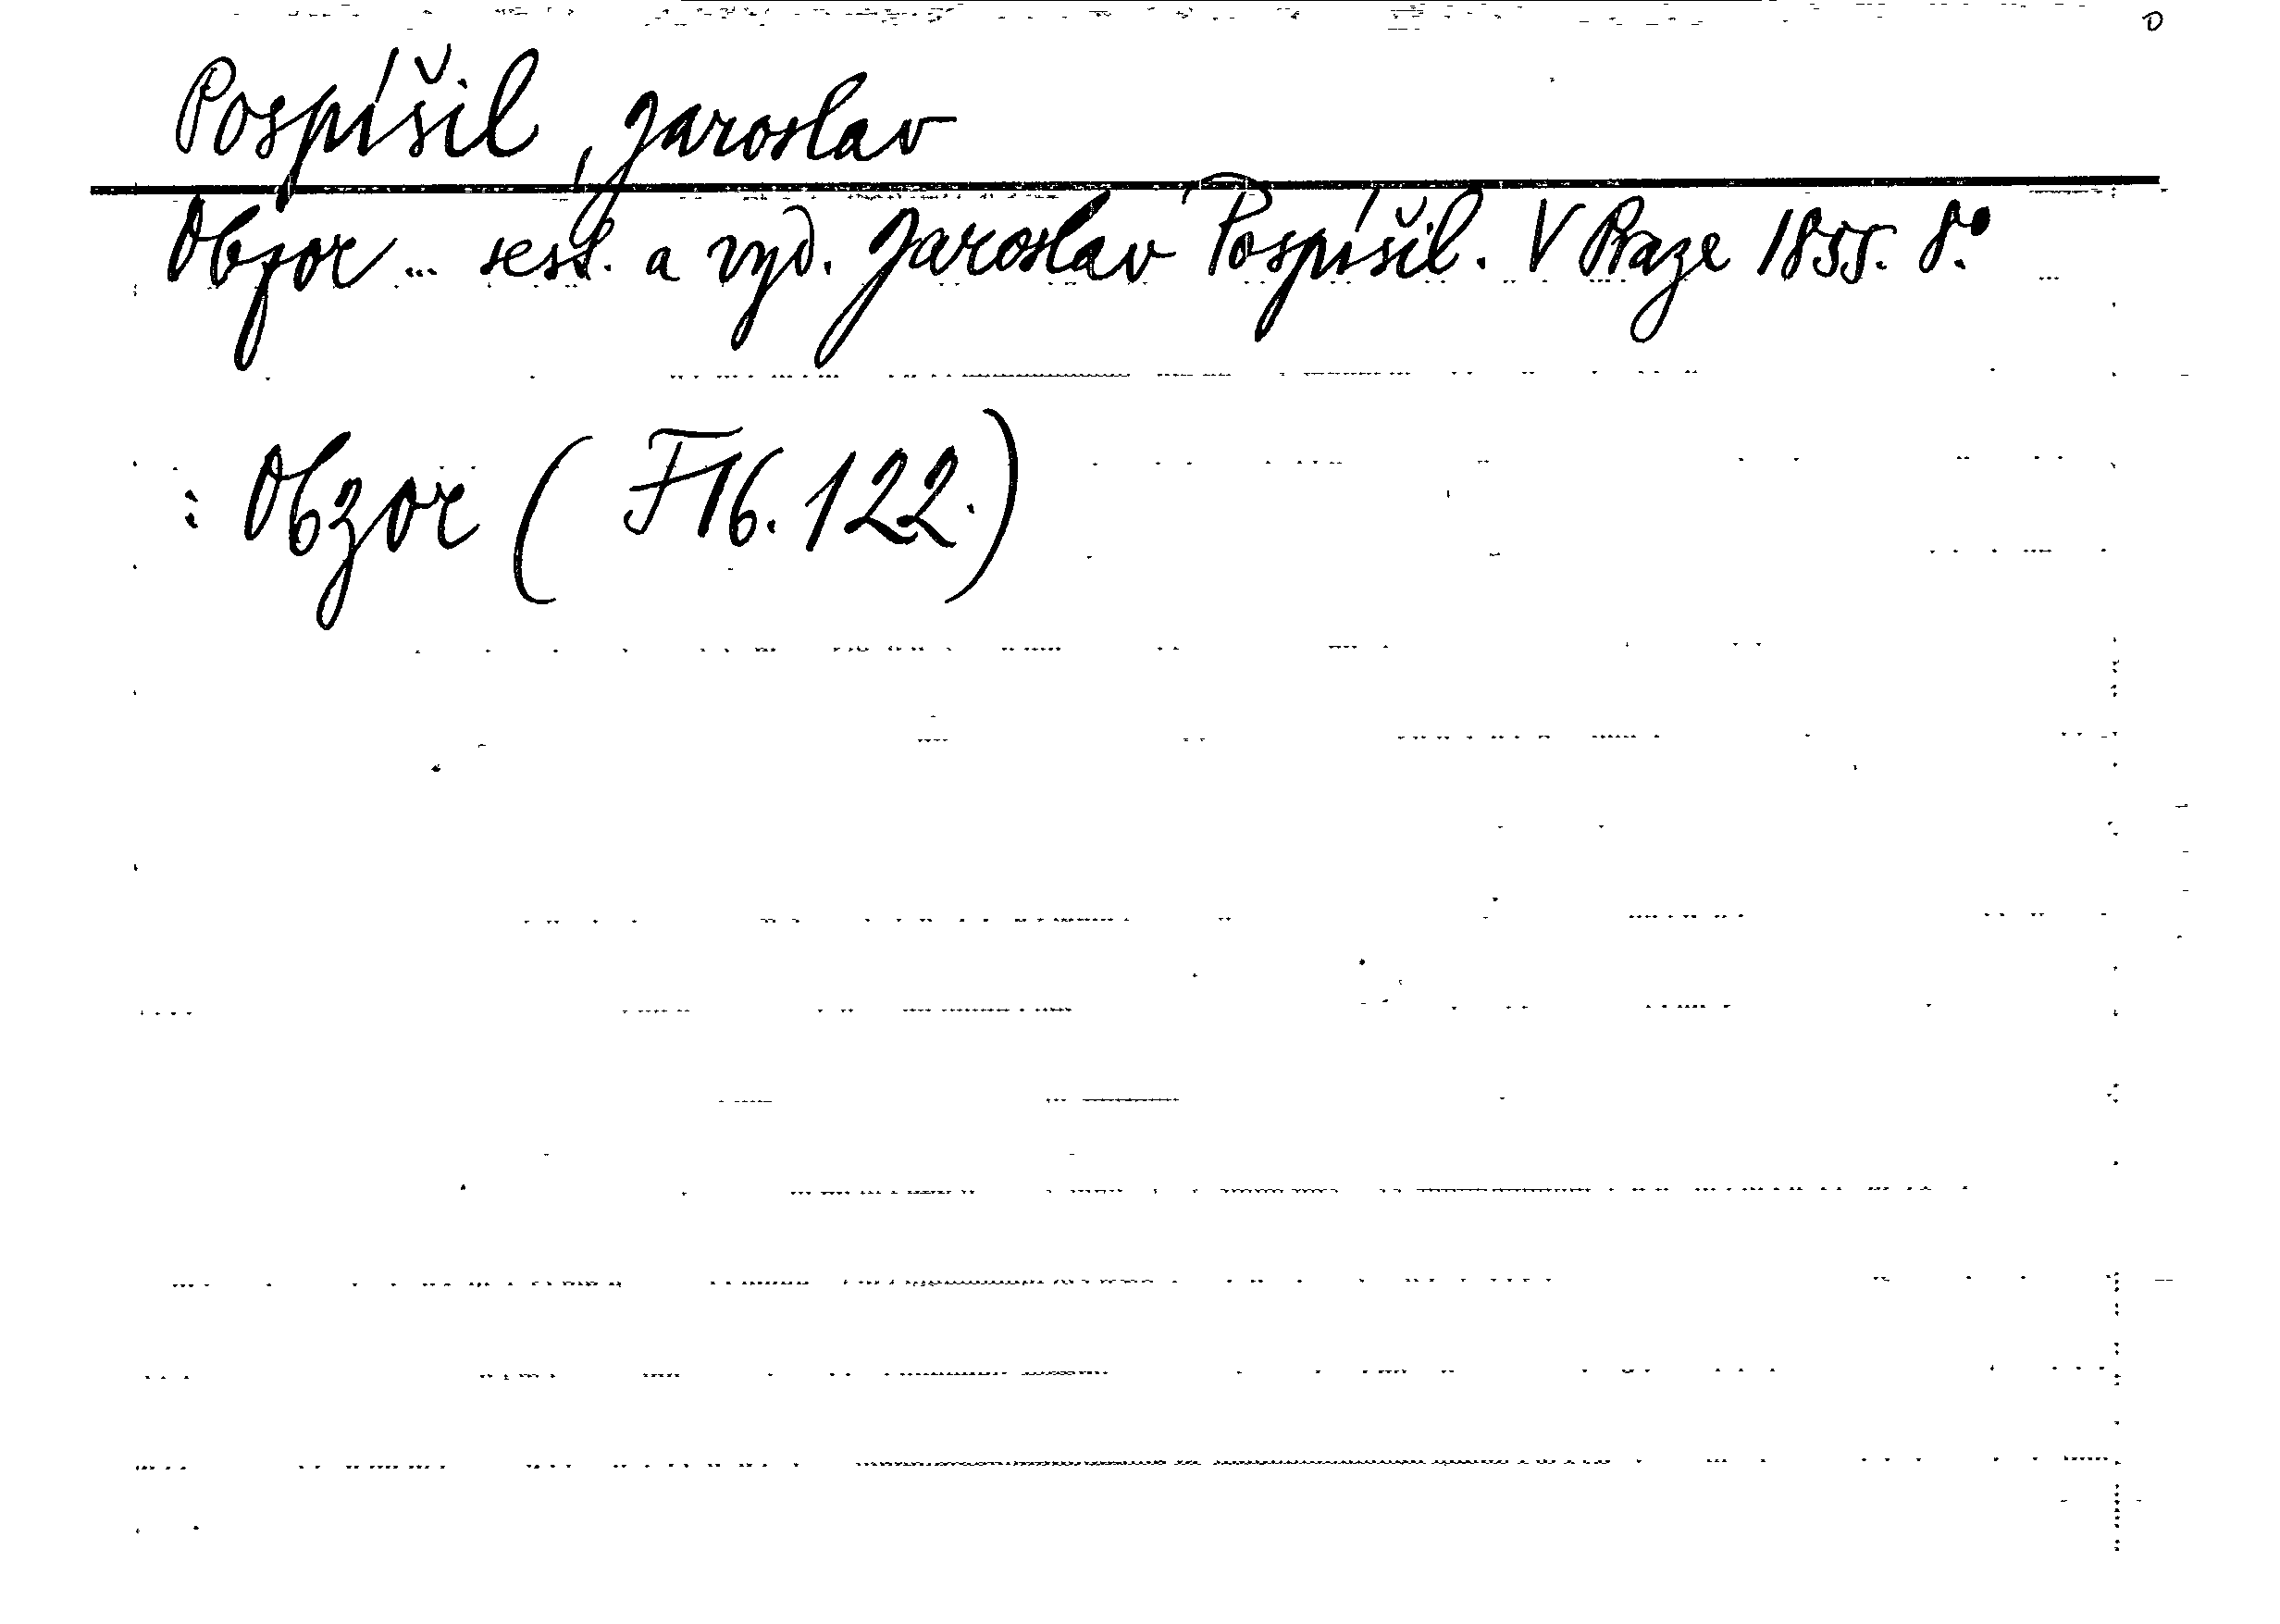 Pospíšil, Jaroslav
Obzor ... sest. a vyd. Jaroslav Pospíšil. V Praze 1855. 8°.
: Obzor (F 16. 122.)